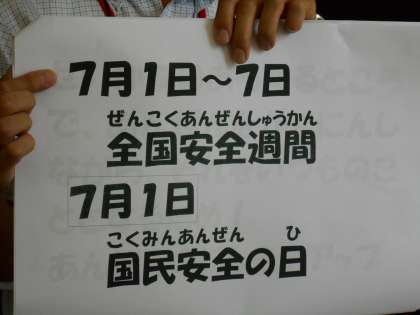 7月1日～7日
ぜんこくあんぜんしゅうかん
全国安全週間
7月1日
こくみんあんぜん ひ
国民安全の日